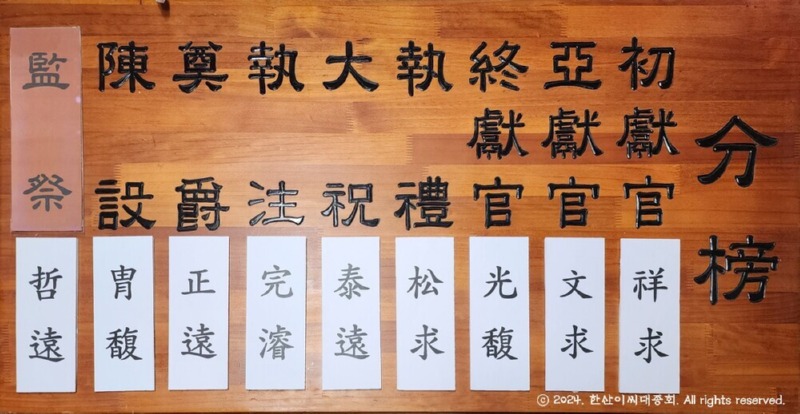 分榜
初獻官 祥求
亞獻官 文求
終獻官 光馥
執禮 松求
大祝 泰遠
執注 完濬
奠爵 正遠
陳設 冑馥
監祭 哲遠
ⓒ 2024. 한산이씨대종회. All rights reserved.